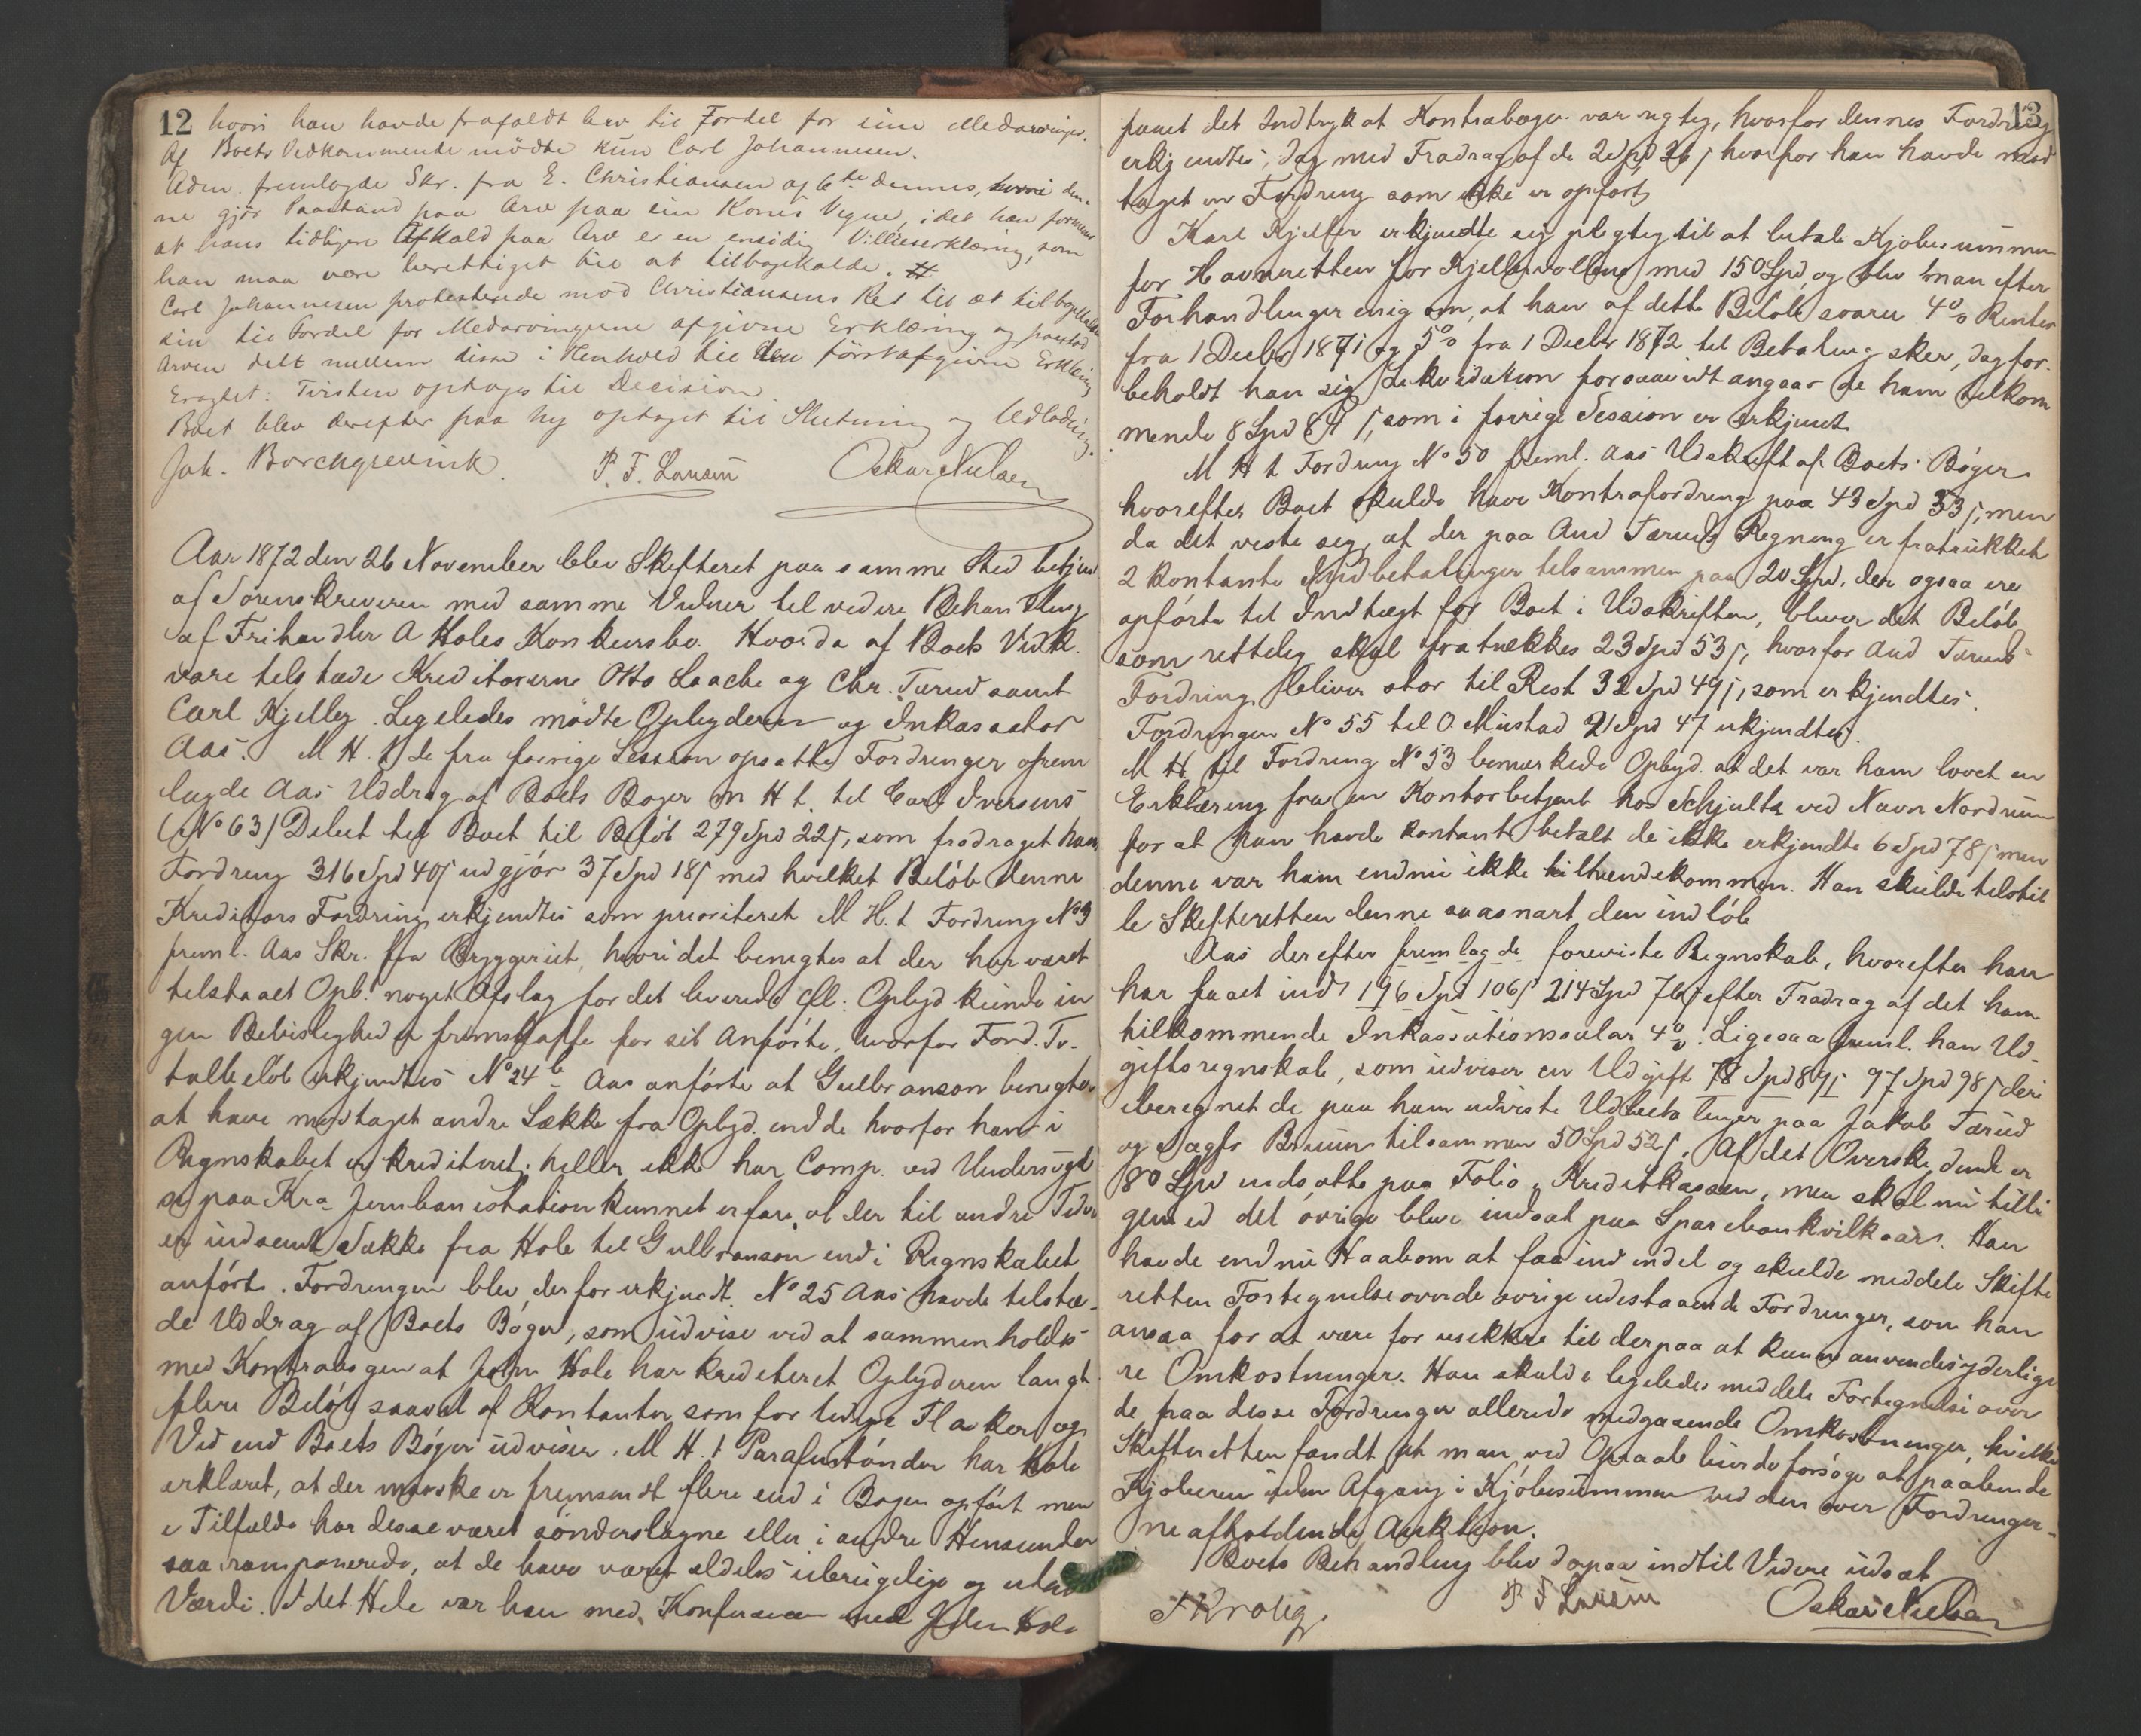 12 hvori han havde frafaldt Arv til Fordel for sine Medarvinger.
Af Boets Vedkommende mødte kun Carl Johannesen.
Adm. fremlagde Skr. fra E. Christiansen af 6te dennes, hvori den-
ne gjør Paastand paa Arv paa sin Kones Vegne, idet han formener
at hans tidligere Afkald paa Arv er en ensidig Villieserklæring, som
han maa være berettiget til at tilbagekalde.
Carl Johannesen protesterede mod Christiansens Ret til at tilbagekalde
sin til Fordel for Medarvingerne afgivne Erklæring og paastod
Arven delt mellem disse i Henhold til den førstafgivne Erklæring
Eragtet: Tvisten optages til Decision
Boet blev derefter paa ny optaget til Slutning og Udlodning.
Joh. Borchgrevink P. F. Larsen Oskar Nielsen
Aar 1872 den 26 November blev Skifteret paa samme Sted betjent
af Sorenskriveren med samme Vidner til videre Behandling
af Frihandler A Holes Konkursbo. Hvorda af Boets Vedk.
vare tilstæde Kreditorerne Otto Laache og Chr. Tærud samt
Carl Kjelley. Ligeledes mødte Opbyderen og Inkassator
Aas. M H. t de fra forrige Session opsatte Fordringer frem
lagde Aas Uddrag af Boets Bøger m H t. til Carl Iversens
(No 63) Debet til Boet til Beløb 279 Spd 22 s, som fradraget hans
Fordring 316 Spd 40 s udgjør 37 Spd 18 s med hvilket Beløb denne
Kreditors Fordring erkjendtes som prioriteret M H. t Fordring No 9
freml. Aas Skr. fra Bryggeriet, hvori det benegtes at der har været
tilstaaet Opb. noget Afslag for det leverede Øl. Opbyd kunde in
gen Bevislighed fremskaffe for sit Anførte, hvorfor Ford. To-
talbeløb erkjendtes No 24 b Aas anførte at Gulbranson benegter
at have modtaget andre Sække fra Opbyd. end de hvorfor han i
Regnskabet er krediteret; heller ikke har Comp. ved Undersøgel
se paa Kra Jernbanestation kunnet erfare, at der til andre Tider
er indsendt Sække fra Hole til Gulbranson end i Regnskabet
anført. Fordringen blev derfor erkjendt. No 25 Aas havde tilstæ-
de Uddrag af Boets Bøger, som udviser ved at sammenholdes
med Kontrabogen at John Hole har krediteret Opbyderen langt
flere Beløb saavel af Kontanter som for ledige Flasker og
Ved end Boets Bøger udviser. M H. t Parafintønder har Hole
erklæret, at der maaske er fremsendt flere end i Bogen opført men
i Tilfælde har disse været sønderslagne eller i andre Henseender
saa ramponerede, at de have været aldeles ubrugelige og uden
Værdi. I det Hele var han med Konferancen med John Hole
13
faaet det Indtryk at Kontrabogen var rigtig, hvorfor dennes Fordring
erkjendtes, dog med Fradrag af de 2 Spd 26 s hvorfor han havde mod
taget en Fordring som ikke er opført
Karl Kjelley erkjendte sig pligtig til at betale Kjøbesummen
for Havneretten for Kjelleyvolden med 150 Spd, og blev man efter
Forhandlinger enig om, at han af dette Beløb svarer 4 % Renter
fra 1 Decbr 1871 og 5 % fra 1 Decbr 1872 til Betaling sker, dog for-
beholdt han sig Likvidation forsaavidt angaar de ham tilkom
mende 8 Spd 8 s, som i forrige Session er erkjendt
M H t Fordring No 50 freml. Aas Udskrift af Boets Bøger
hvorefter Boet skulde have Kontrafordring paa 43 Spd 53 s, men
da det viste sig, at der paa And Tæruds Regning er fratrukket
2 kontante Indbetalinger tilsammen paa 20 Spd, der ogsaa ere
opførte til Indtægt for Boet i Udskriften, bliver det Beløb
som rettelig skal fratrækkes 23 Spd 53 s, hvorfor And Tæruds
Fordring bliver stor til Rest 32 Spd 49 s, som erkjendtes.
Fordringen No 55 til O. Mustad 21 Spd 47 erkjendtes.
M H til Fordring No 53 bemærkede Opbyd. at det var ham lovet en
Erklæring fra en Kontorbetjent hos Schjultz ved Navn Nordrum
for at han havde kontant betalt de ikke erkjendte 6 Spd 78 s men
denne var ham endnu ikke tilhændekommen. Han skulde tilstil
le Skifteretten denne saasnart den indløb
Aas derefter fremlagde foreviste Regnskab, hvorefter han
har faaet ind 196 Spd 106 s 214 Spd 76 s efter Fradrag af det ham
tilkommende Inkassationssalær 4 %. Ligesaa freml. han Ud-
giftsregnskab, som udviser en Udgift 78 Spd 89 s 97 Spd 98 s deri
iberegnet de paa ham udviste Udbetalinger paa Jakob Tærud
og Sagfr Bruun tilsammen 50 Spd 52 s. Af det Overskydende er
80 Spd indsatte paa Folio i Kreditkassen, men skal nu tilli
gemed det øvrige blive indsat paa Sparebankvilkaar. Han
havde endnu Haab om at faa ind endel og skulde meddele Skifte
retten Fortegnelse over de øvrige udestaaende Fordringer, som han
ansaa for at være for usikkre til derpaa at kunne anvendes yderlige
re Omkostninger. Han skulde ligeledes meddele Fortegnelse over
de paa disse Fordringer allerede medgaaende Omkostninger, hvilke
Skifteretten fandt at man ved Opraab burde forsøge at paabende
Kjøberen uden Afgang i Kjøbesummen ved den over Fordringer-
ne afholdende Auktion.
Boets Behandling blev derpaa indtil Videre udsat
P F Larsen Oskar Nielsen